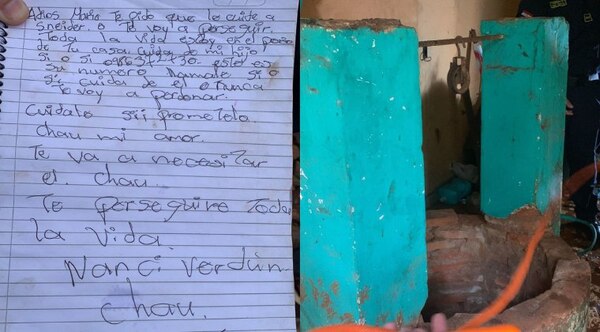 Adios Te pido que lo cuide a
sneider. o Te voy a perseguir.
Toda la vida estoy en el poso
de Tu casa. cuida de mi hijo
si o si este es
su numero llamale si o
si cuida de el o nunca
Te voy a perdonar.
Cuidalo sii prometelo.
chau mi amor.
Te va a necesitar
el. chau.
Te perseguire Toda
la vida.
Nanci Verdún
chau.